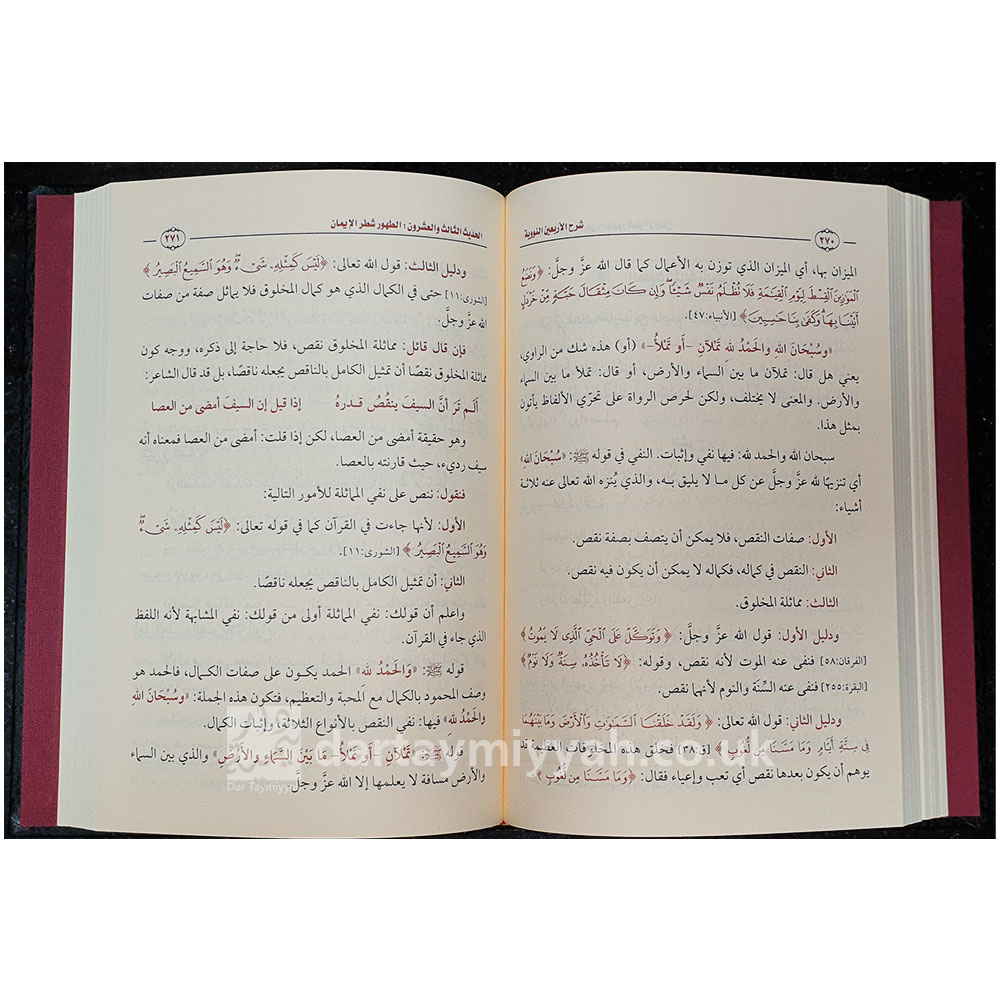 شرح الأربعين النووية
٢٧٠
الميزان بها، أي الميزان الذي توزن به الأعمال كما قال الله عزَّ وجلَّ: ﴿وَنَضَعُ
الْمَوَازِينَ الْقِسْطَ لِيَوْمِ الْقِيَامَةِ فَلَا تُظْلَمُ نَفْسٌ شَيْئًا وَإِن كَانَ مِثْقَالَ حَبَّةٍ مِّنْ خَرْدَلٍ
أَتَيْنَا بِهَا وَكَفَى بِنَا حَاسِبِينَ﴾ [الأنبياء:٤٧].
«وسُبْحَانَ اللهِ والحَمْدُ لله تَمْلآنِ –أَو تَمْلأُ–» (أو) هذه شك من الراوي،
يعني هل قال: تملآن ما بين السماء والأرض، أو قال: تملأ ما بين السماء
والأرض. والمعنى لا يختلف، ولكن لحرص الرواة على تحرّي الألفاظ يأتون
بمثل هذا.
سبحان الله والحمد لله: فيها نفي وإثبات. النفي في قوله ﷺ: «سُبْحَانَ اللهِ»
أي تنزيهًا لله عزَّ وجلَّ عن كل ما لا يليق بـه، والذي يُنزه الله تعالى عنه ثلاثة
أشياء:
الأول: صفات النقص، فلا يمكن أن يتصف بصفة نقص.
الثاني: النقص في كماله، فكماله لا يمكن أن يكون فيه نقص.
الثالث: مماثلة المخلوق.
ودليل الأول: قول الله عزَّ وجلَّ: ﴿وَتَوَكَّلْ عَلَى الْحَيِّ الَّذِي لَا يَمُوتُ﴾
[الفرقان:٥٨] فنفى عنه الموت لأنه نقص، وقوله: ﴿لَا تَأْخُذُهُ سِنَةٌ وَلَا نَوْمٌ﴾
[البقرة:٢٥٥] فنفى عنه السِّنَة والنوم لأنهما نقص.
ودليل الثاني: قول الله تعالى: ﴿وَلَقَدْ خَلَقْنَا السَّمَاوَاتِ وَالْأَرْضَ وَمَا بَيْنَهُمَا
فِي سِتَّةِ أَيَّامٍ وَمَا مَسَّنَا مِن لُّغُوبٍ﴾ [ق:٣٨] فخلق هذه المخلوقات العظيمة قد
يوهم أن يكون بعدها نقص أي تعب وإعياء فقال: ﴿وَمَا مَسَّنَا مِن لُّغُوبٍ﴾
الحديث الثالث والعشرون: الطهور شطر الإيمان
٢٧١
ودليل الثالث: قول الله تعالى: ﴿لَيْسَ كَمِثْلِهِ شَيْءٌ وَهُوَ السَّمِيعُ الْبَصِيرُ﴾
[الشورى:١١] حتى في الكمال الذي هو كمال المخلوق فلا يماثل صفة من صفات
الله عزَّ وجلَّ.
فإن قال قائل: مماثلة المخلوق نقص، فلا حاجة إلى ذكره، ووجه كون
مماثلة المخلوق نقصًا أن تمثيل الكامل بالناقص يجعله ناقصًا، بل قد قال الشاعر:
ألم تَرَ أنَّ السيفَ ينقُصُ قدرهُ إذا قيل إن السيفَ أمضى من العصا
وهو حقيقة أمضى من العصا، لكن إذا قلت: أمضى من العصا فمعناه أنه
سيف رديء، حيث قارنته بالعصا.
فنقول: ننص على نفي المماثلة للأمور التالية:
الأول: لأنها جاءت في القرآن كما في قوله تعالى: ﴿لَيْسَ كَمِثْلِهِ شَيْءٌ
وَهُوَ السَّمِيعُ الْبَصِيرُ﴾ [الشورى:١١].
الثاني: أن تمثيل الكامل بالناقص يجعله ناقصًا.
واعلم أن قولك: نفي المماثلة أولى من قولك: نفي المشابهة لأنه اللفظ
الذي جاء في القرآن.
قوله ﷺ: «وَالحَمْدُ لله» الحمد يكـون على صفات الكمال، فالحمد هو
وصف المحمود بالكمال مع المحبة والتعظيم، فتكون هذه الجملة: «وسُبْحَانَ اللهِ
والحَمْدُ لله» فيها: نفي النقص بالأنواع الثلاثة، وإثبات الكمال.
قوله ﷺ: «تَمْلآنِ –أَو تَمْلأُ– مَا بَيْنَ السَّمَاءِ وَالأَرْضِ» والذي بين السماء
والأرض مسافة لا يعلمها إلا الله عزَّ وجلَّ.
dartaymiyyah.co.uk
Dar Taymiyyah